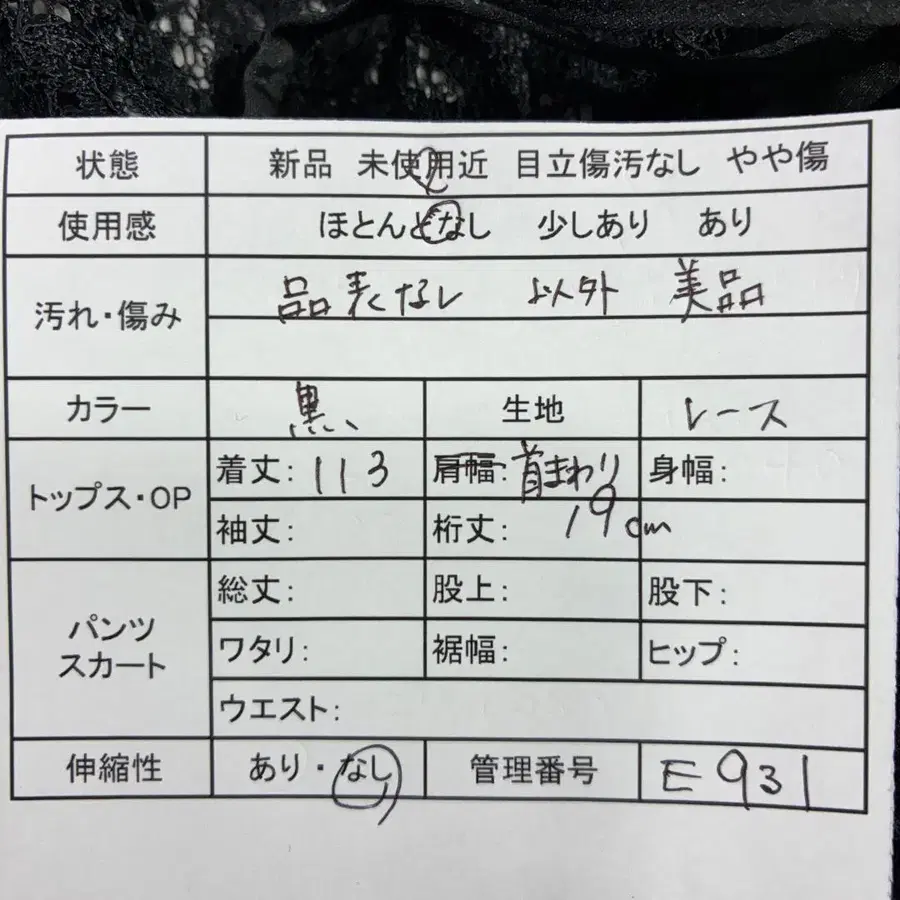 状態 新品 未使用近 目立傷汚なし やや傷
使用感 ほとんどなし 少しあり あり
汚れ・傷み 品表なし 以外 美品
カラー 黒 生地 レース
トップス・OP 着丈: 113 肩幅: 首まわり 身幅:
袖丈: 裄丈: 19cm
パンツ スカート 総丈: 股上: 股下:
ワタリ: 裾幅: ヒップ:
ウエスト:
伸縮性 あり・なし 管理番号 E931